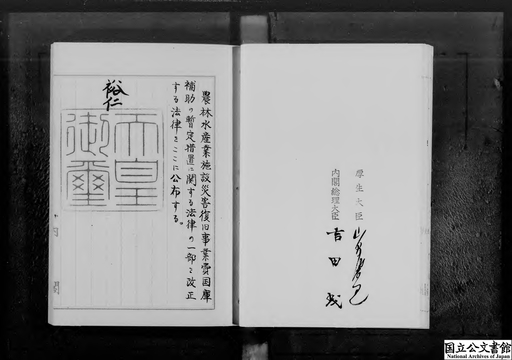 厚生大臣
内閣総理大臣 吉田茂
農林水産業施設災害復旧事業費国庫
補助の暫定措置に関する法律の一部を改正
する法律をここに公布する。
裕仁
天皇
御璽
国立公文書館
National Archives of Japan